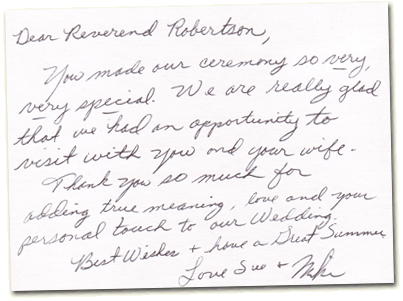 Dear Reverend Robertson,
You made our ceremony so very,
very special. We are really glad
that we had an opportunity to
visit with you and your wife.
Thank you so much for
adding true meaning, love and your
personal touch to our Wedding.
Best Wishes + have a Great Summer
Love Sue + Mike